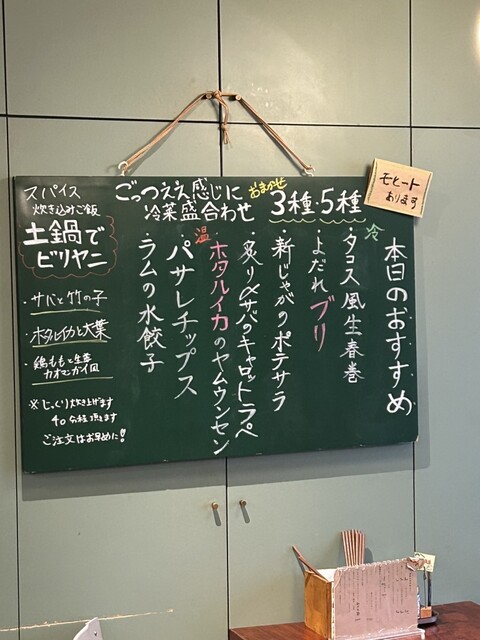 本日のおすすめ
冷
・タコス風生春巻
・よだれブリ
・新じゃがのポテサラ
・炙り〆サバのキャロットラペ
温
・ホタルイカのヤムウンセン
パサレチップス
・ラムの水餃子
ごっつええ感じに
冷菜盛合わせ
おまかせ
3種・5種
モヒート
あります
スパイス
炊き込みご飯
土鍋で
ビリヤニ
・サバと竹の子
・ホタルイカと大葉
・鶏ももと生姜
カオマンガイ風
※じっくり炊き上げます
40分程頂きます
ご注文はお早めに!!